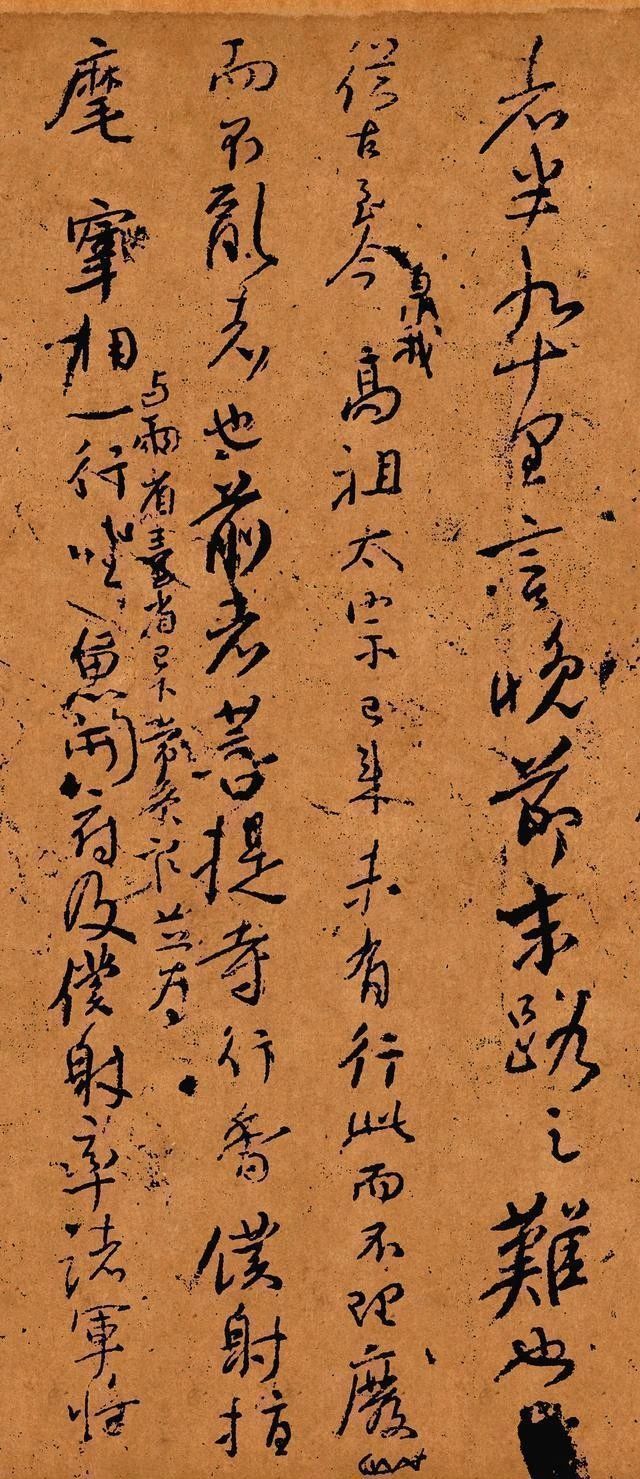 者半九十里言晚節末路之難也
從古至今臮我高祖太宗已来未有行此而不理廢
而不亂者也前者菩提寺行香僕射指
麾宰相与兩省臺省已下常叅官並為一行坐魚開府及僕射率諸軍將